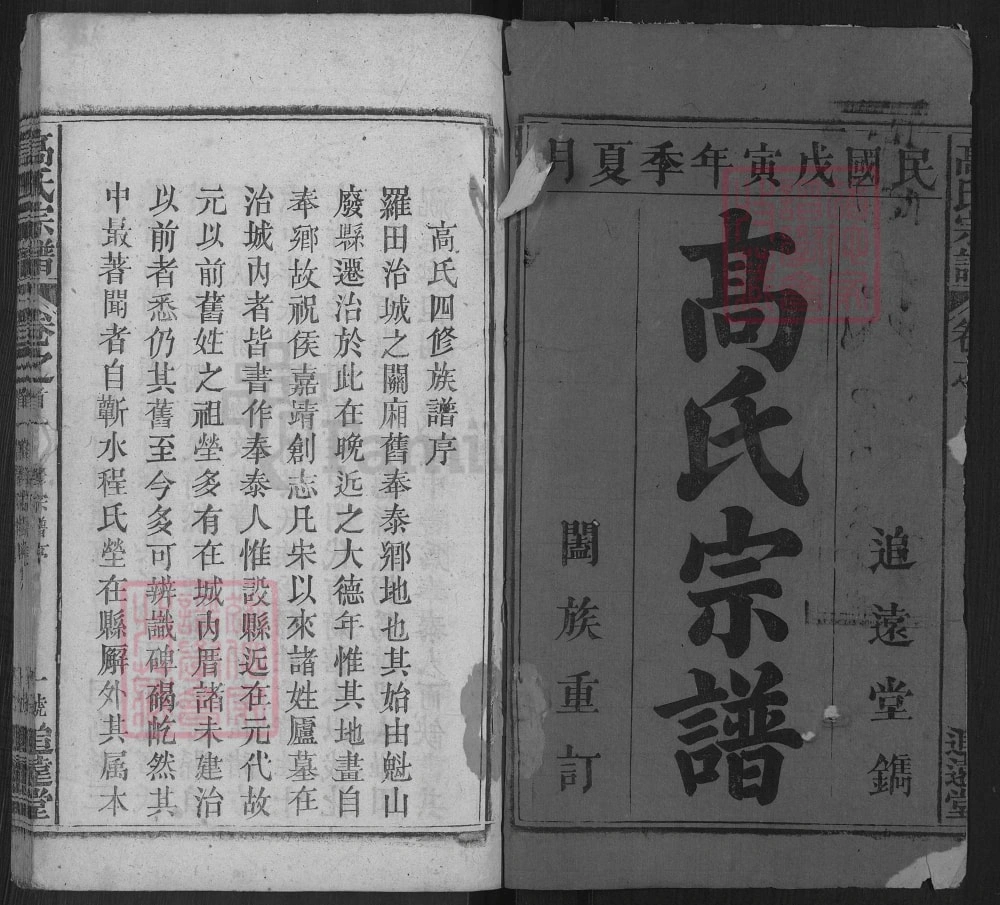 民國戊寅年季夏月
追遠堂鐫
髙氏宗譜
闔族重訂
高氏宗譜
追遠堂
高氏四修族譜序
羅田治城之關廂舊奉泰鄉地也其始由魁山
廢縣遷治於此在晚近之大德年惟其地畫自
奉鄉故祝侯嘉靖創志凡宋以來諸姓廬墓在
治城內者皆書作奉泰人惟設縣近在元代故
元以前舊姓之祖塋多有在城內厝諸未建治
以前者悉仍其舊至今多可辨識碑碣屹然其
中最著聞者自蘄水程氏塋在縣廨外其属本
高氏宗譜
卷之首
宗譜序
一號
追遠堂